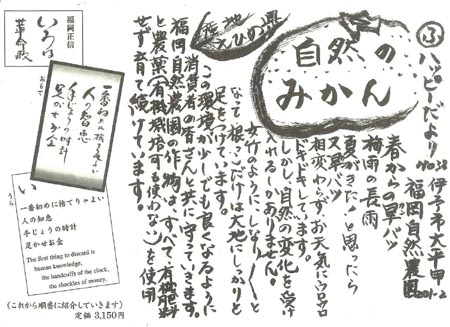 ふ
ハッピーだより
No.38
伊予市大平甲
201-2
福岡自然農園
春からの旱バツ
梅雨の長雨
夏がきた！と思ったら
又旱バツ
相変わらず、お天気にウロウロ
ドキドキしています。
しかし、自然の変化を受け
入れるしかありません。
女竹のように、しなりしなりと
なって根っこだけは大地にしっかりと
足をつけています。
自然の
みかん
産地
えひめ県
この環境が少しでも良くなるように
消費者の皆さんと共に守っていきます。
福岡自然農園の作物は、すべて有機肥料
と農薬(有機栽培可も使わない)を使用
せず育て続けています。
福岡正信
いろは
革命歌
おもて
一番初めに捨て りゃよい
人の智恵
手じょうの時計
足かせお金
うら
い
一番初めに捨てりゃよい
人の知恵
手じょうの時計
足かせお金
The first thing to discard is
human knowledge,
the handcuffs of the clock,
the shackles of money.
(これから順番に紹介していきます)
定価 3,150円